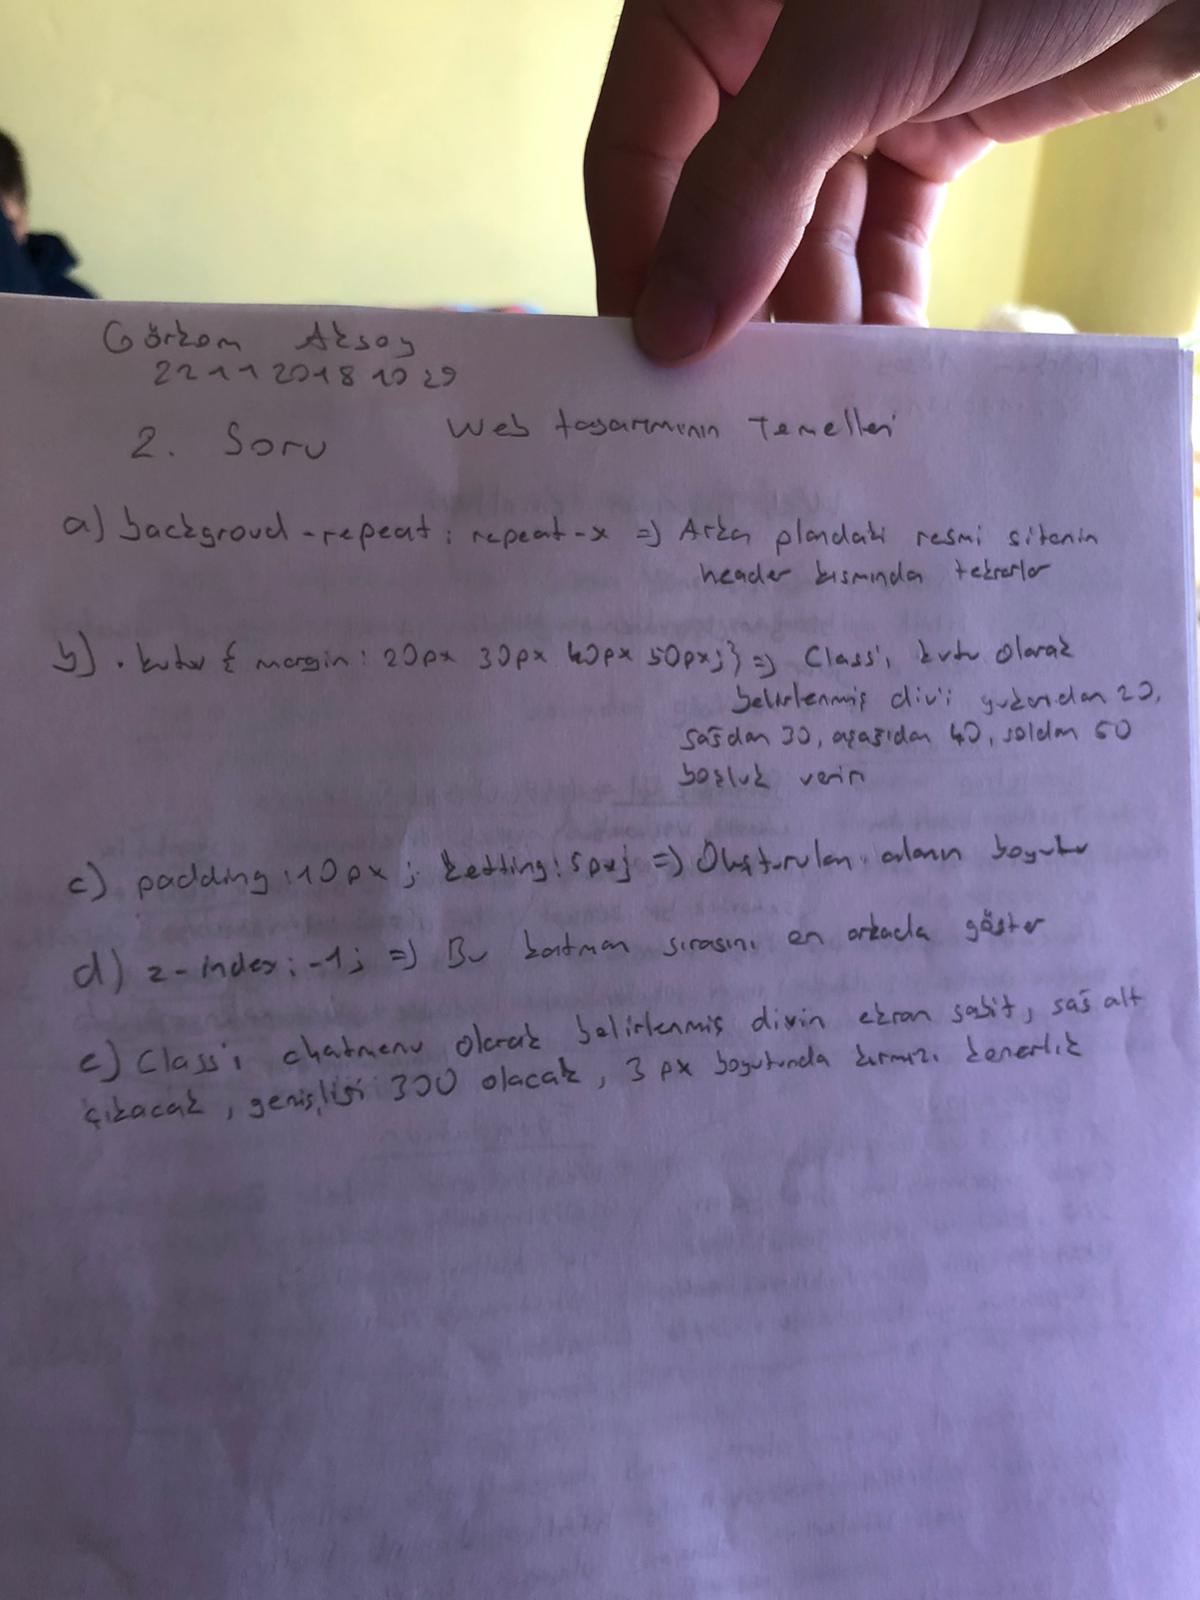 Görkem Aksoy
22112018 10 29
2. Soru
Web tasarımının Temelleri
a) backgroud-repeat: repeat-x => Arka plandaki resmi sitenin
header kısmında tekrarlar
b) .kutu { margin: 20px 30px 40px 50px;} => Class'ı kutu olarak
belirlenmiş div'i yukarıdan 20,
sağdan 30, aşağıdan 40, soldan 50
boşluk verin
c) padding:10px; ketting:5px; => Oluşturulan alanın boyutu
d) z-index:-1; => Bu katman sırasını en arkada göster
e) Class'ı chatmenu olarak belirlenmiş divin ekran sabit, sağ alt
çıkacak, genişliği 300 olacak, 3 px boyutunda kırmızı kenarlık